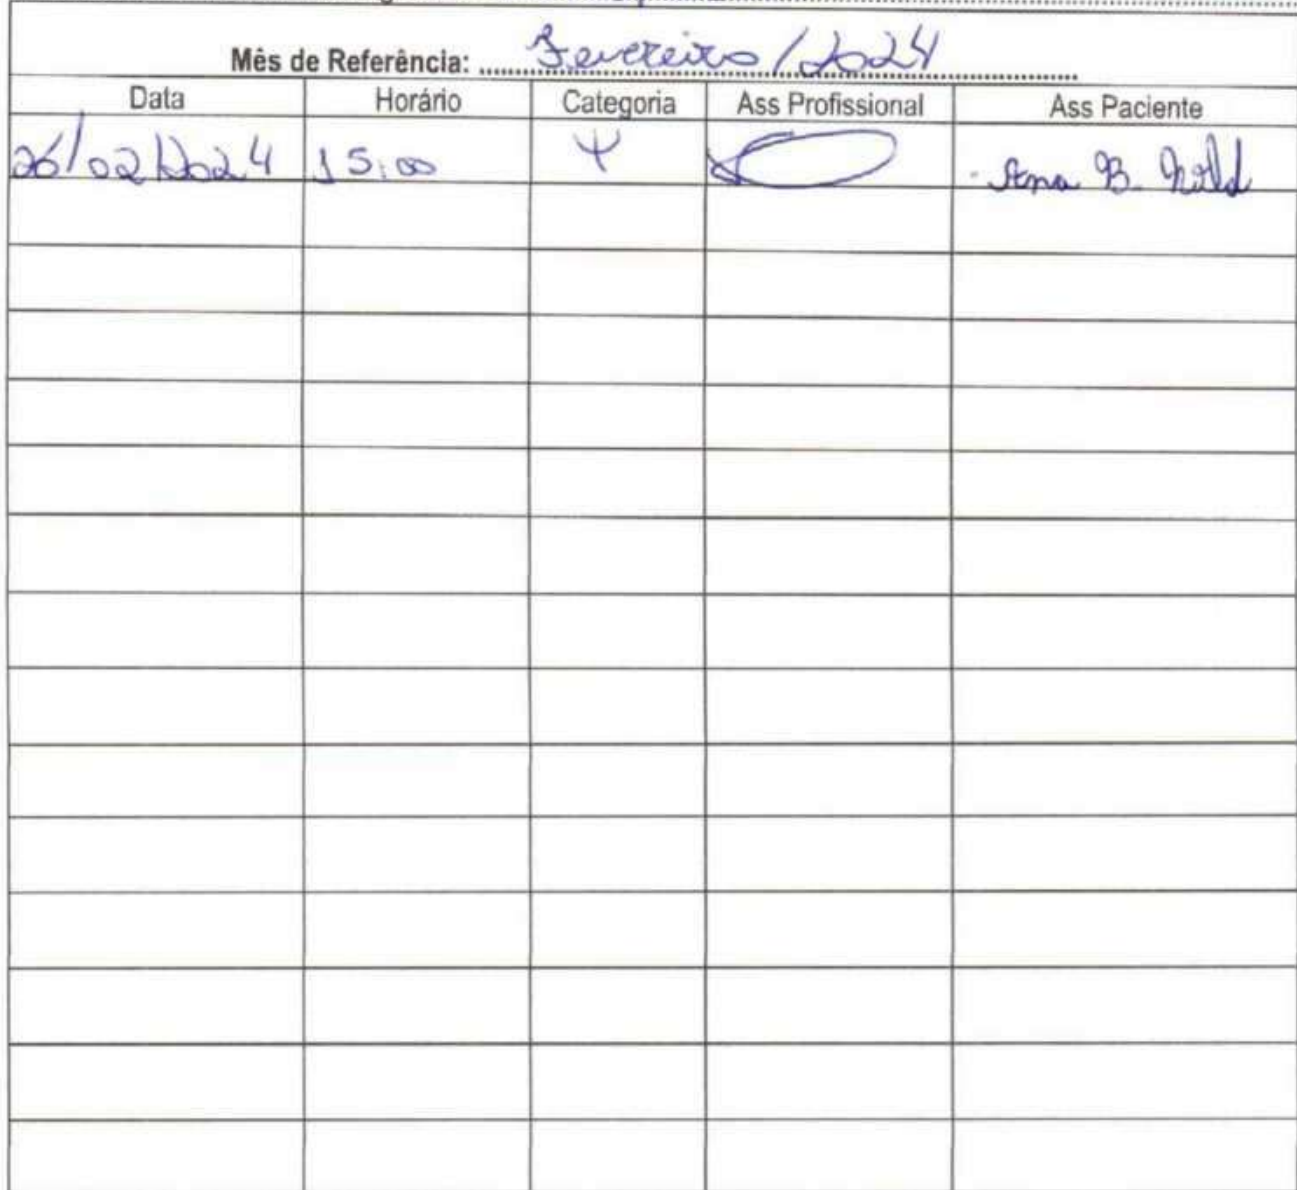 Mês de Referência: Fevereiro / 2024
Data Horário Categoria Ass Profissional Ass Paciente
26/02/2024 15:00 Ψ Ana B.